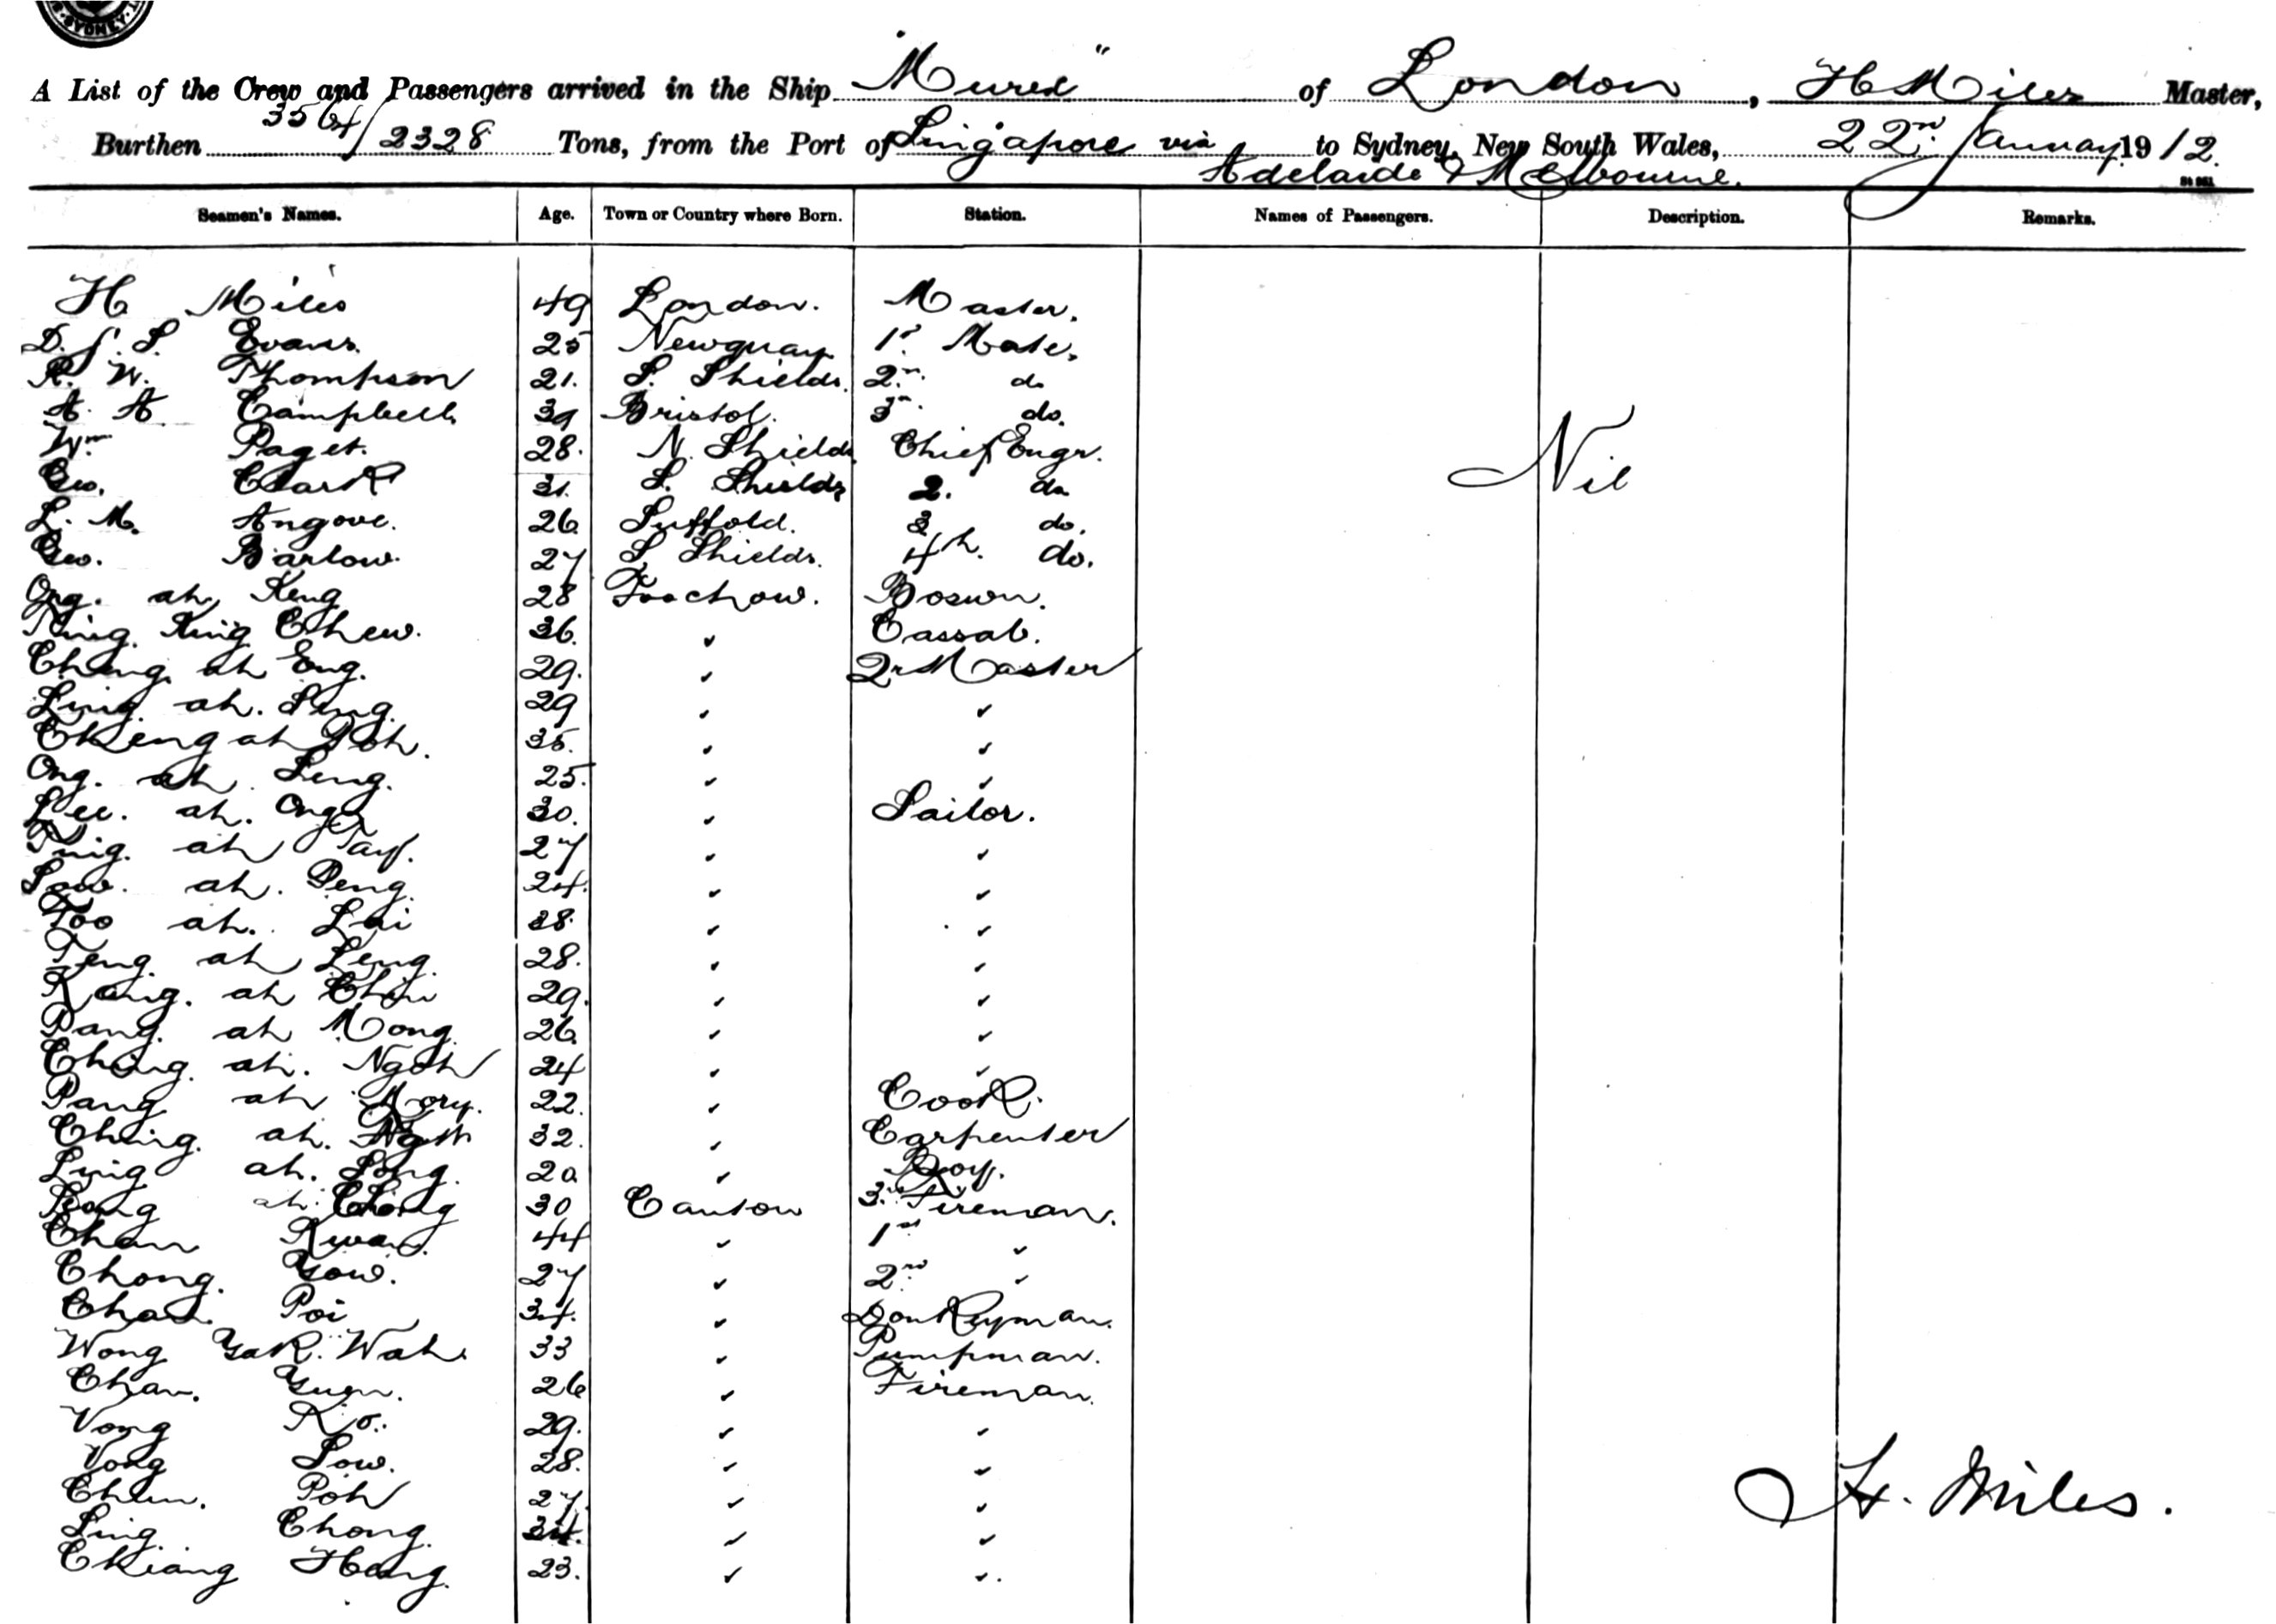 SYDNEY
A List of the Crew and Passengers arrived in the Ship "Murex" of London, H Miles Master,
Burthen 3564/2328 Tons, from the Port of Singapore via Adelaide & Melbourne. to Sydney, New South Wales, 22nd January 1912.
Seamen's Names. Age. Town or Country where Born. Station. Names of Passengers. Description. Remarks.
H Miles 49 London. Master.
D. J. S. Evans. 25 Newquay 1st Mate.
R. W. Thompson 21. S. Shields. 2nd do
A. A Campbell 39 Bristol. 3rd do.
Wm Paget. 28. N. Shields Chief Engr.
Geo. Clark 31. S. Shields 2. do
L. M. Angove. 26 Suffold. 3 do.
Geo. Barlow. 27 S Shields. 4th. do.
Nil
Ong. ah Keng 28 Foochow. Boswn.
King Chew. 36. " Cassab.
Ching ah Eng. 29. " Qr Master
Ling. ah. Seng. 29 " "
Ckeng ah 35. " "
Ong. ah Seng. 25. " "
Lee. ah. Ong 30. " Sailor.
Ting. ah Tay. 27 " "
Sow. ah. Peng. 24. " "
Foo ah. Lai 28. " "
Teng. ah Leng. 28. " "
Kang. ah Chiu 29. " "
Pang. ah Mong 26 " "
Ching. ah. Ngoh 24 " "
Pang ah 22. " Cook.
Ching. ah. 32. " Carpenter
Ling ah. Song. 20 " Boy.
ah. Chong 30 Canton 3rd Fireman.
Chan Kwan. 44 " 1st "
Chong. Yow. 27 " 2nd "
Chan. Poi 34. " Donkeyman.
Wong Yak. Wah. 33 " Pumpman.
Chan. Yuen. 26 " Fireman.
Vong Ko. 29. " "
Vong Sow. 28. " "
Chun. Poh 27. " "
Ling. Chong. 34. " "
Ckiang Hang. 23. " "
H. Miles.